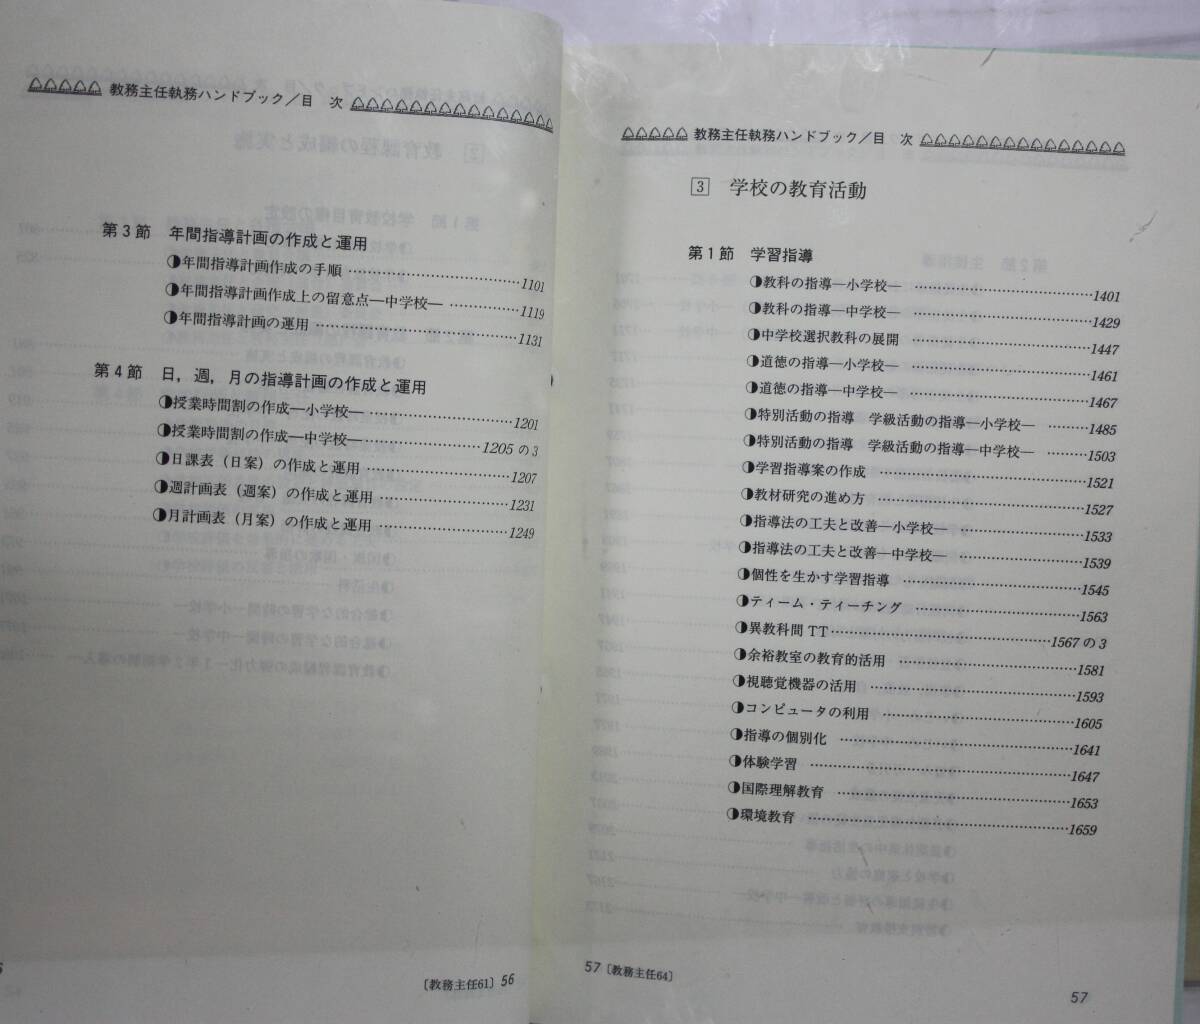 教務主任執務ハンドブック／目　次
第３節　年間指導計画の作成と運用
◑年間指導計画作成の手順 …………………………1101
◑年間指導計画作成上の留意点―中学校― …………1119
◑年間指導計画の運用 ………………………………1131
第４節　日，週，月の指導計画の作成と運用
◑授業時間割の作成―小学校― ……………………1201
◑授業時間割の作成―中学校―……………………1205の3
◑日課表（日案）の作成と運用 ……………………1207
◑週計画表（週案）の作成と運用 …………………1231
◑月計画表（月案）の作成と運用 …………………1249
〔教務主任61〕 56
教務主任執務ハンドブック／目　次
3　学校の教育活動
第１節　学習指導
◑教科の指導―小学校― ……………………………1401
◑教科の指導―中学校― ……………………………1429
◑中学校選択教科の展開 ……………………………1447
◑道徳の指導―小学校― ……………………………1461
◑道徳の指導―中学校― ……………………………1467
◑特別活動の指導　学級活動の指導―小学校― ………1485
◑特別活動の指導　学級活動の指導―中学校― ………1503
◑学習指導案の作成 …………………………………1521
◑教材研究の進め方 …………………………………1527
◑指導法の工夫と改善―小学校― ……………………1533
◑指導法の工夫と改善―中学校― ……………………1539
◑個性を生かす学習指導 ……………………………1545
◑ティーム・ティーチング …………………………1563
◑異教科間TT…………………………………………1567の3
◑余裕教室の教育的活用 ……………………………1581
◑視聴覚機器の活用 …………………………………1593
◑コンピュータの利用 ………………………………1605
◑指導の個別化 ………………………………………1641
◑体験学習 ……………………………………………1647
◑国際理解教育 ………………………………………1653
◑環境教育 ……………………………………………1659
57〔教務主任64〕
57